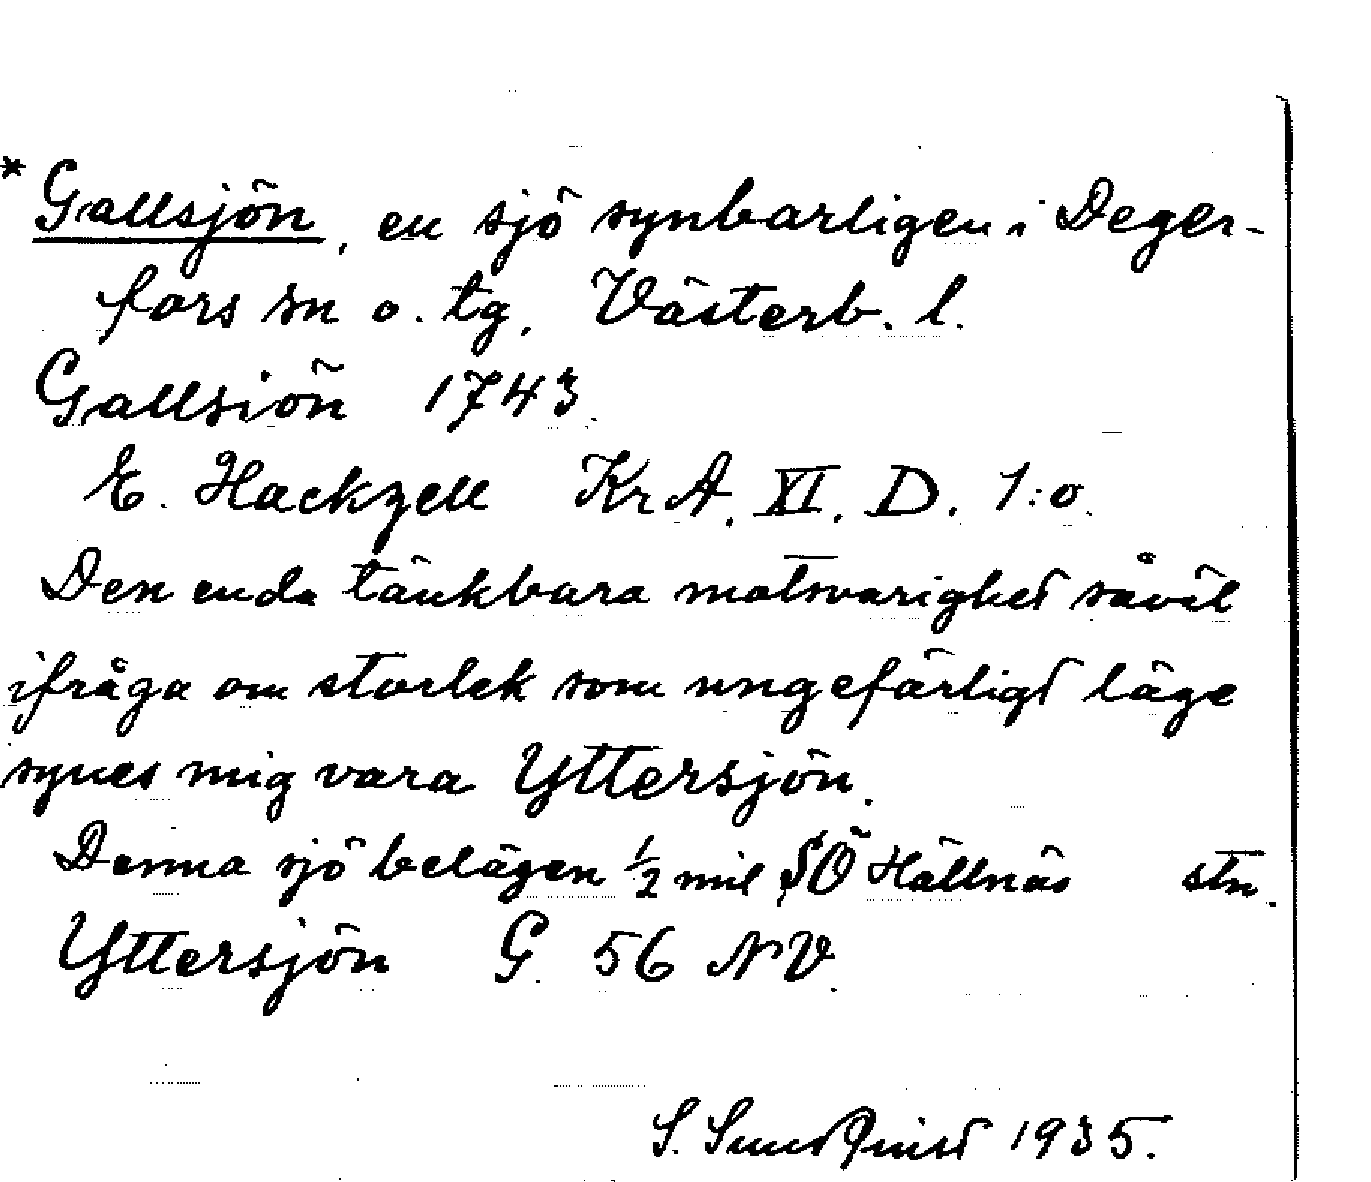 * Gallsjön, en sjö synbarligen i Deger-
fors sn o. tg, Västerb. l.
Gallsiön 1743.
E. Hackzell KrA. XI. D. 1:o.
Den enda tänkbara motsvarighet såväl
ifråga om storlek som ungefärligt läge
synes mig vara Yttersjön.
Denna sjö belägen 1/2 mil SÖ Hällnäs stn.
Yttersjön G. 56 NV.
S. Sundquist 1935.